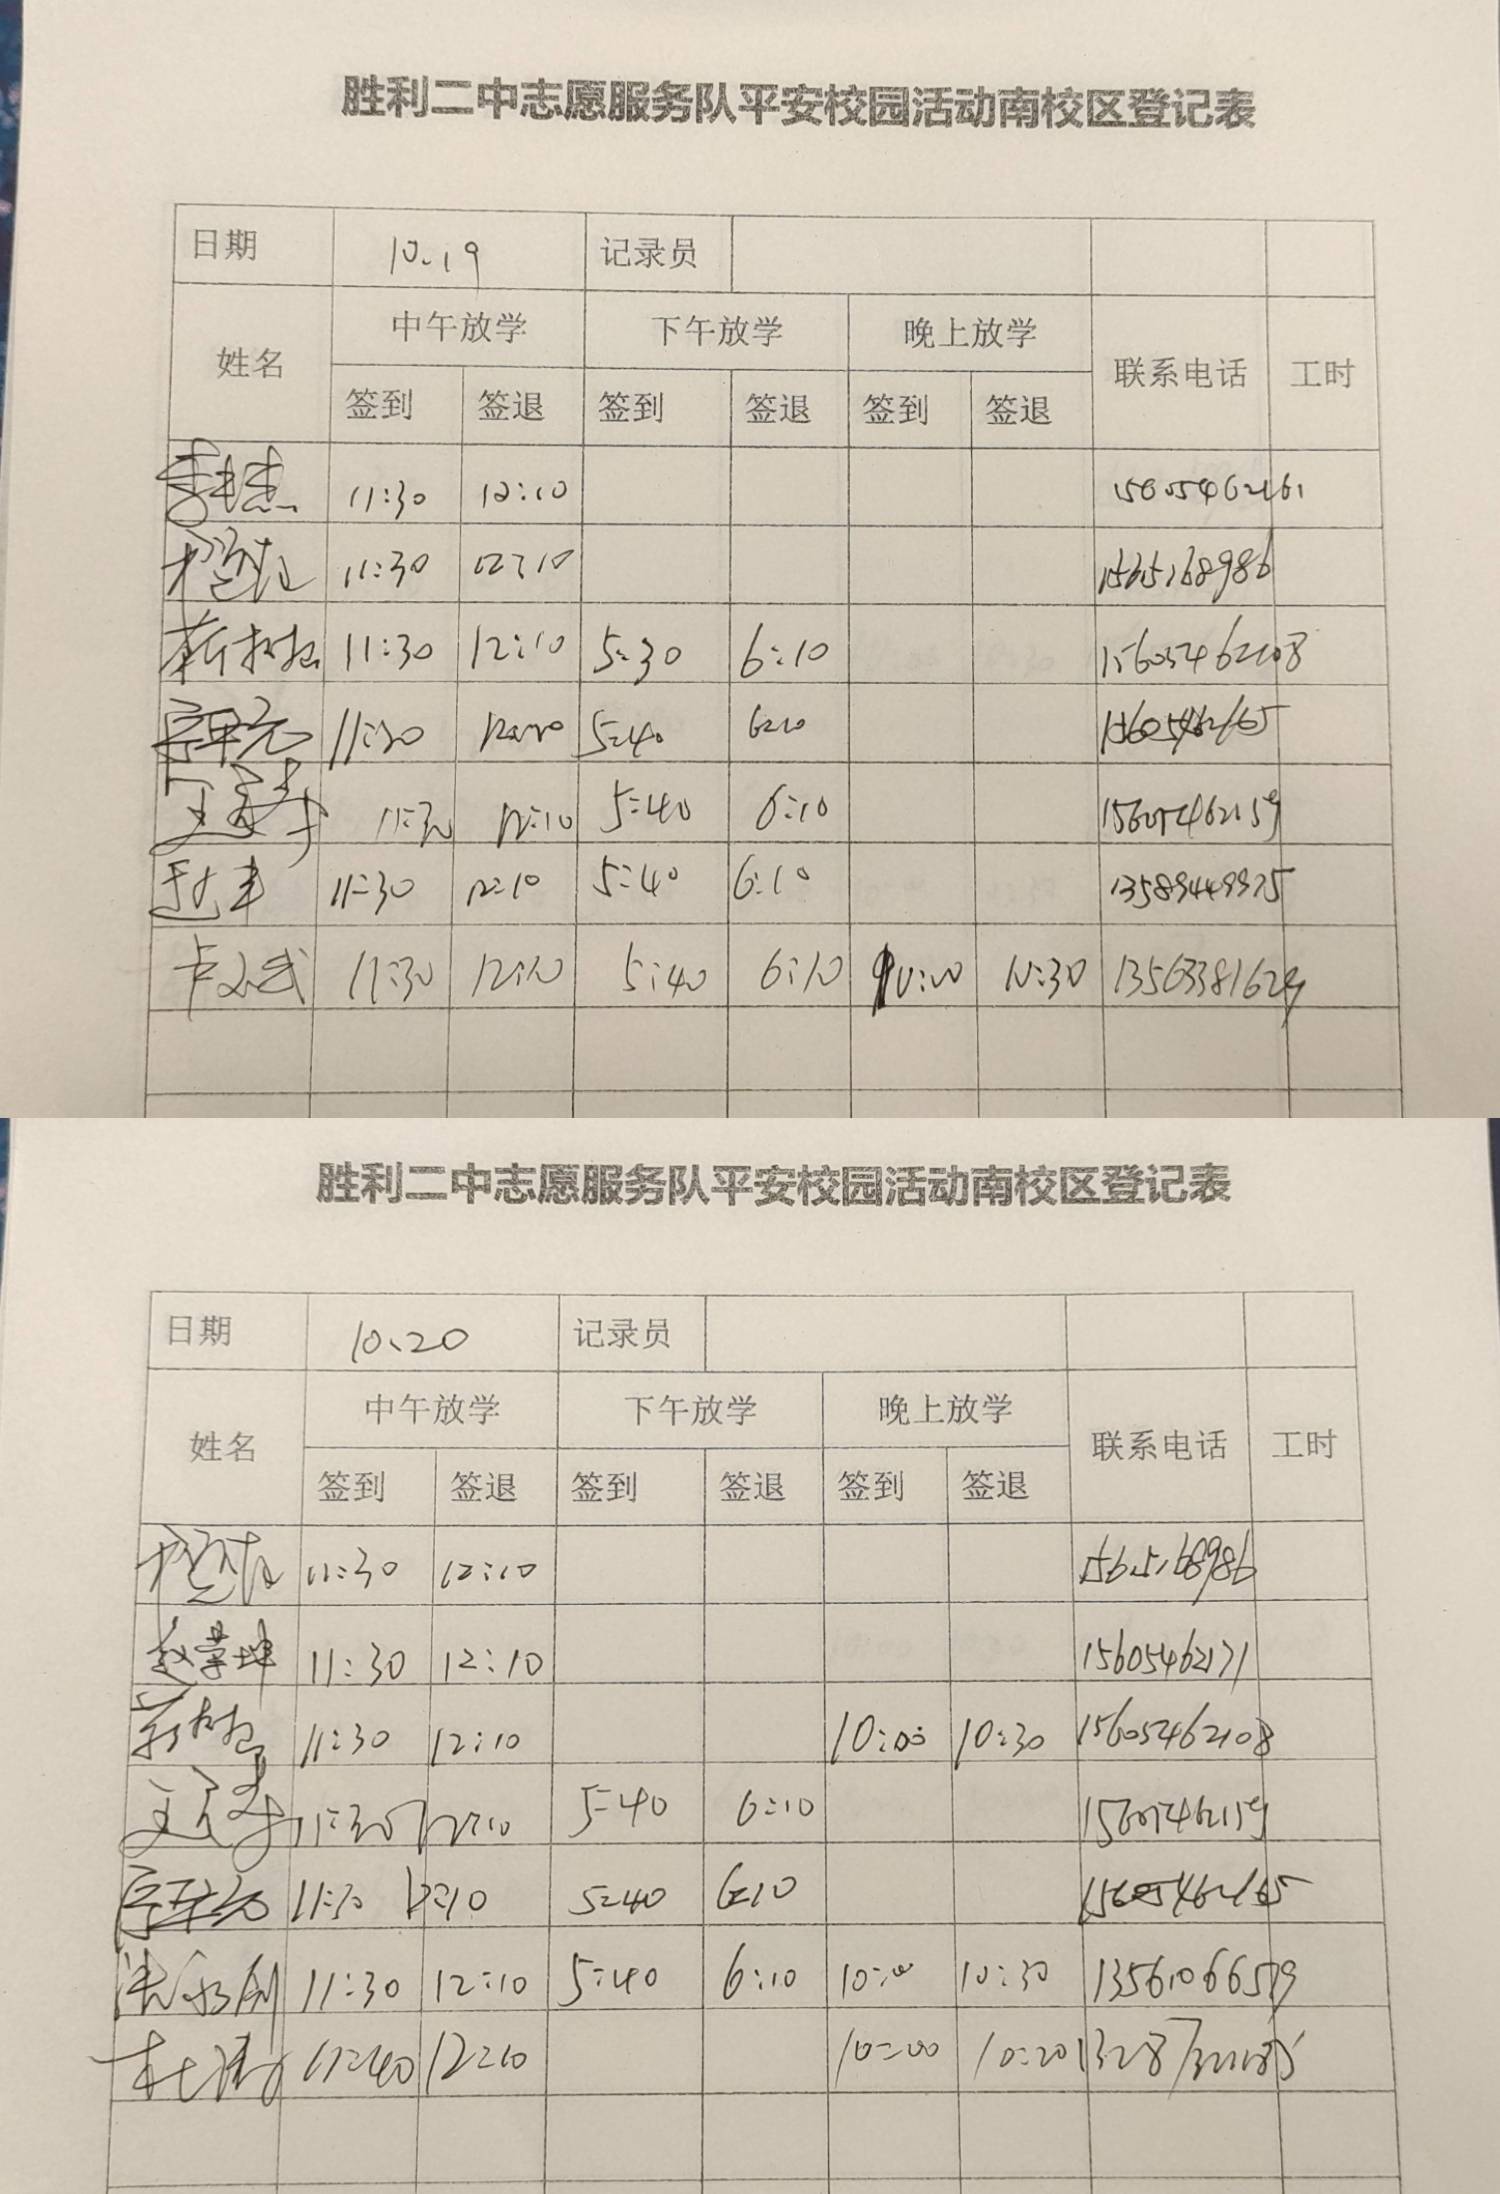 胜利二中志愿服务队平安校园活动南校区登记表
日期 10.19 记录员
中午放学 下午放学 晚上放学
姓名 联系电话 工时
签到 签退 签到 签退 签到 签退
11:30 12:10
11:30 12:10 15615168986
11:30 12:10 5:30 6:10 15605462108
5:40 6:10 15605462165
11:30 12:10 5:40 6:10 15605462159
11:30 12:10 5:40 6:10 13589449375
11:30 12:10 5:40 6:10 10:00 10:30 13563381629
胜利二中志愿服务队平安校园活动南校区登记表
日期 10、20 记录员
中午放学 下午放学 晚上放学
姓名 联系电话 工时
签到 签退 签到 签退 签到 签退
11:30 12:10 15615168986
11:30 12:10 15605462171
11:30 12:10 10:00 10:30 15605462108
11:30 12:10 5:40 6:10 15605462159
11:30 12:10 5:40 6:10 15605462165
11:30 12:10 5:40 6:10 10:00 10:30 13561066579
杜涛 11:40 12:10 10:00 10:20